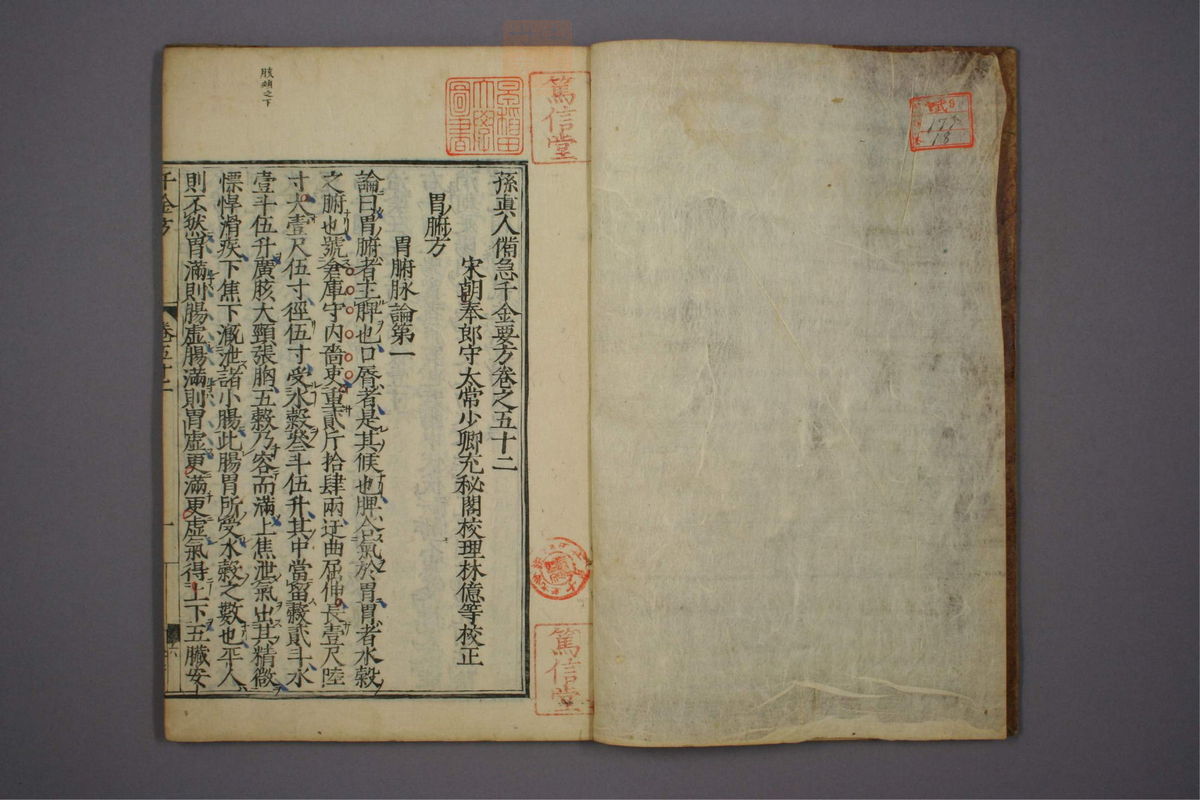 孫真人備急千金要方卷之五十二
宋朝奉郎守太常少卿充秘閣校理林億等校正
胃腑方
胃腑脉論第一
論曰胃腑者主脾也口脣者是其候也脾合氣於胃胃者水穀
之腑也號倉庫守内嗇吏重貳斤拾肆兩迂曲屈伸長壹尺陸
寸大壹尺伍寸徑伍寸受水穀叄斗伍升其中當留穀貳斗水
壹斗伍升廣胲大頸張胸五穀乃容而滿上焦泄氣出其精微
慓悍滑疾下焦下溉泄諸小腸此腸胃所受水穀之數也平人
則不然胃滿則腸虛腸滿則胃虛更滿更虛氣得上下五臟安
千金方
卷五十二
一
胲
之下
篤信堂
早稻田大學圖書
篤信堂